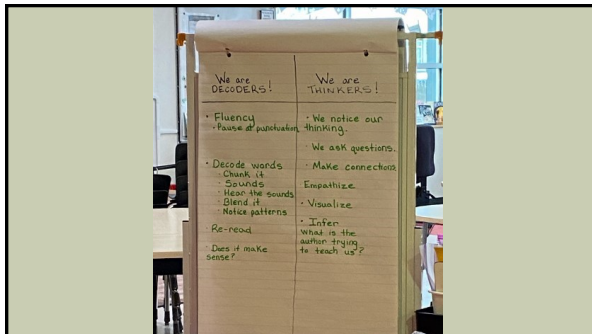 We are
DECODERS!
• Fluency
• Pause at punctuation
• Decode words
• Chunk it
• Sounds
• Hear the sounds
• Blend it
• Notice patterns
• Re-read
• Does it make
sense?
We are
THINKERS!
• We notice our
thinking.
• We ask questions.
• Make connections
Empathize
• Visualize
• Infer
What is the
author trying
to teach us?